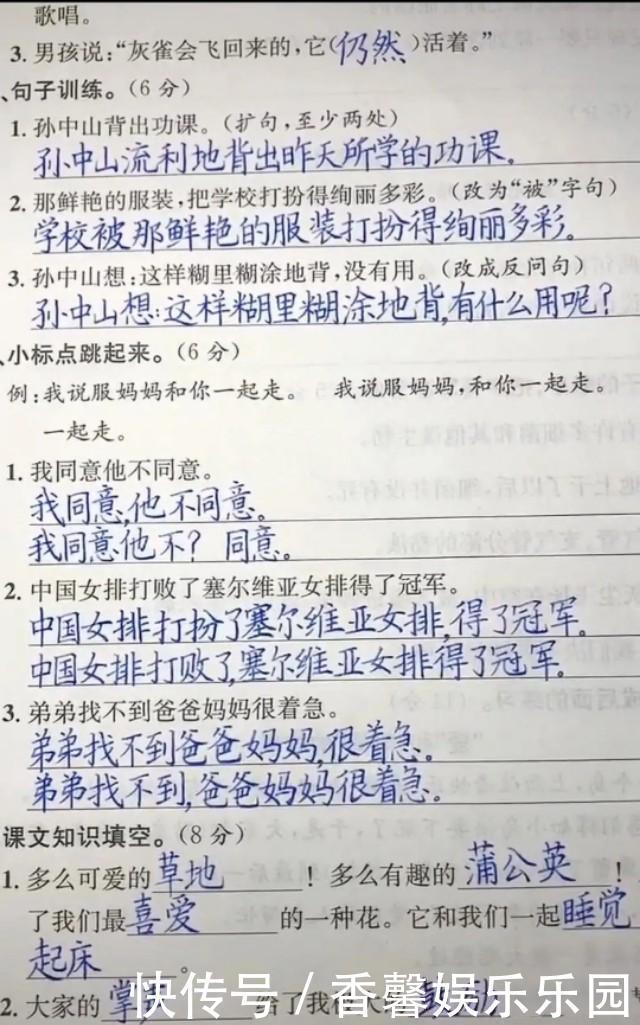 歌唱。
3. 男孩说:“灰雀会飞回来的,它(仍然)活着。”
、句子训练。(6 分)
1. 孙中山背出功课。(扩句,至少两处)
孙中山流利地背出昨天所学的功课。
2. 那鲜艳的服装,把学校打扮得绚丽多彩。(改为“被”字句)
学校被那鲜艳的服装打扮得绚丽多彩。
3. 孙中山想:这样糊里糊涂地背,没有用。(改成反问句)
孙中山想:这样糊里糊涂地背,有什么用呢?
、小标点跳起来。(6 分)
例:我说服妈妈和你一起走。 我说服妈妈,和你一起走。
一起走。
1. 我同意他不同意。
我同意,他不同意。
我同意他不? 同意。
2. 中国女排打败了塞尔维亚女排得了冠军。
中国女排打扮了塞尔维亚女排,得了冠军。
中国女排打败了,塞尔维亚女排得了冠军。
3. 弟弟找不到爸爸妈妈很着急。
弟弟找不到爸爸妈妈,很着急。
弟弟找不到,爸爸妈妈很着急。
课文知识填空。(8 分)
1. 多么可爱的草地!多么有趣的蒲公英!
了我们最喜爱的一种花。它和我们一起睡觉
起床。
2. 大家的掌 给了我 大的
快传号 / 香馨娱乐乐园